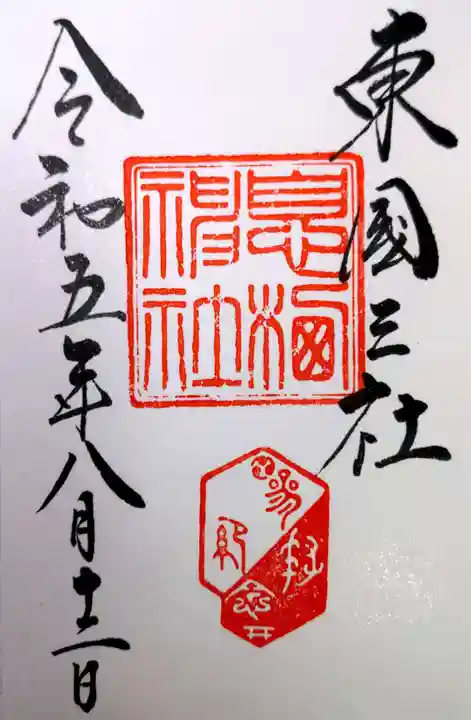 東國三社
息栖神社
令和五年八月十二日